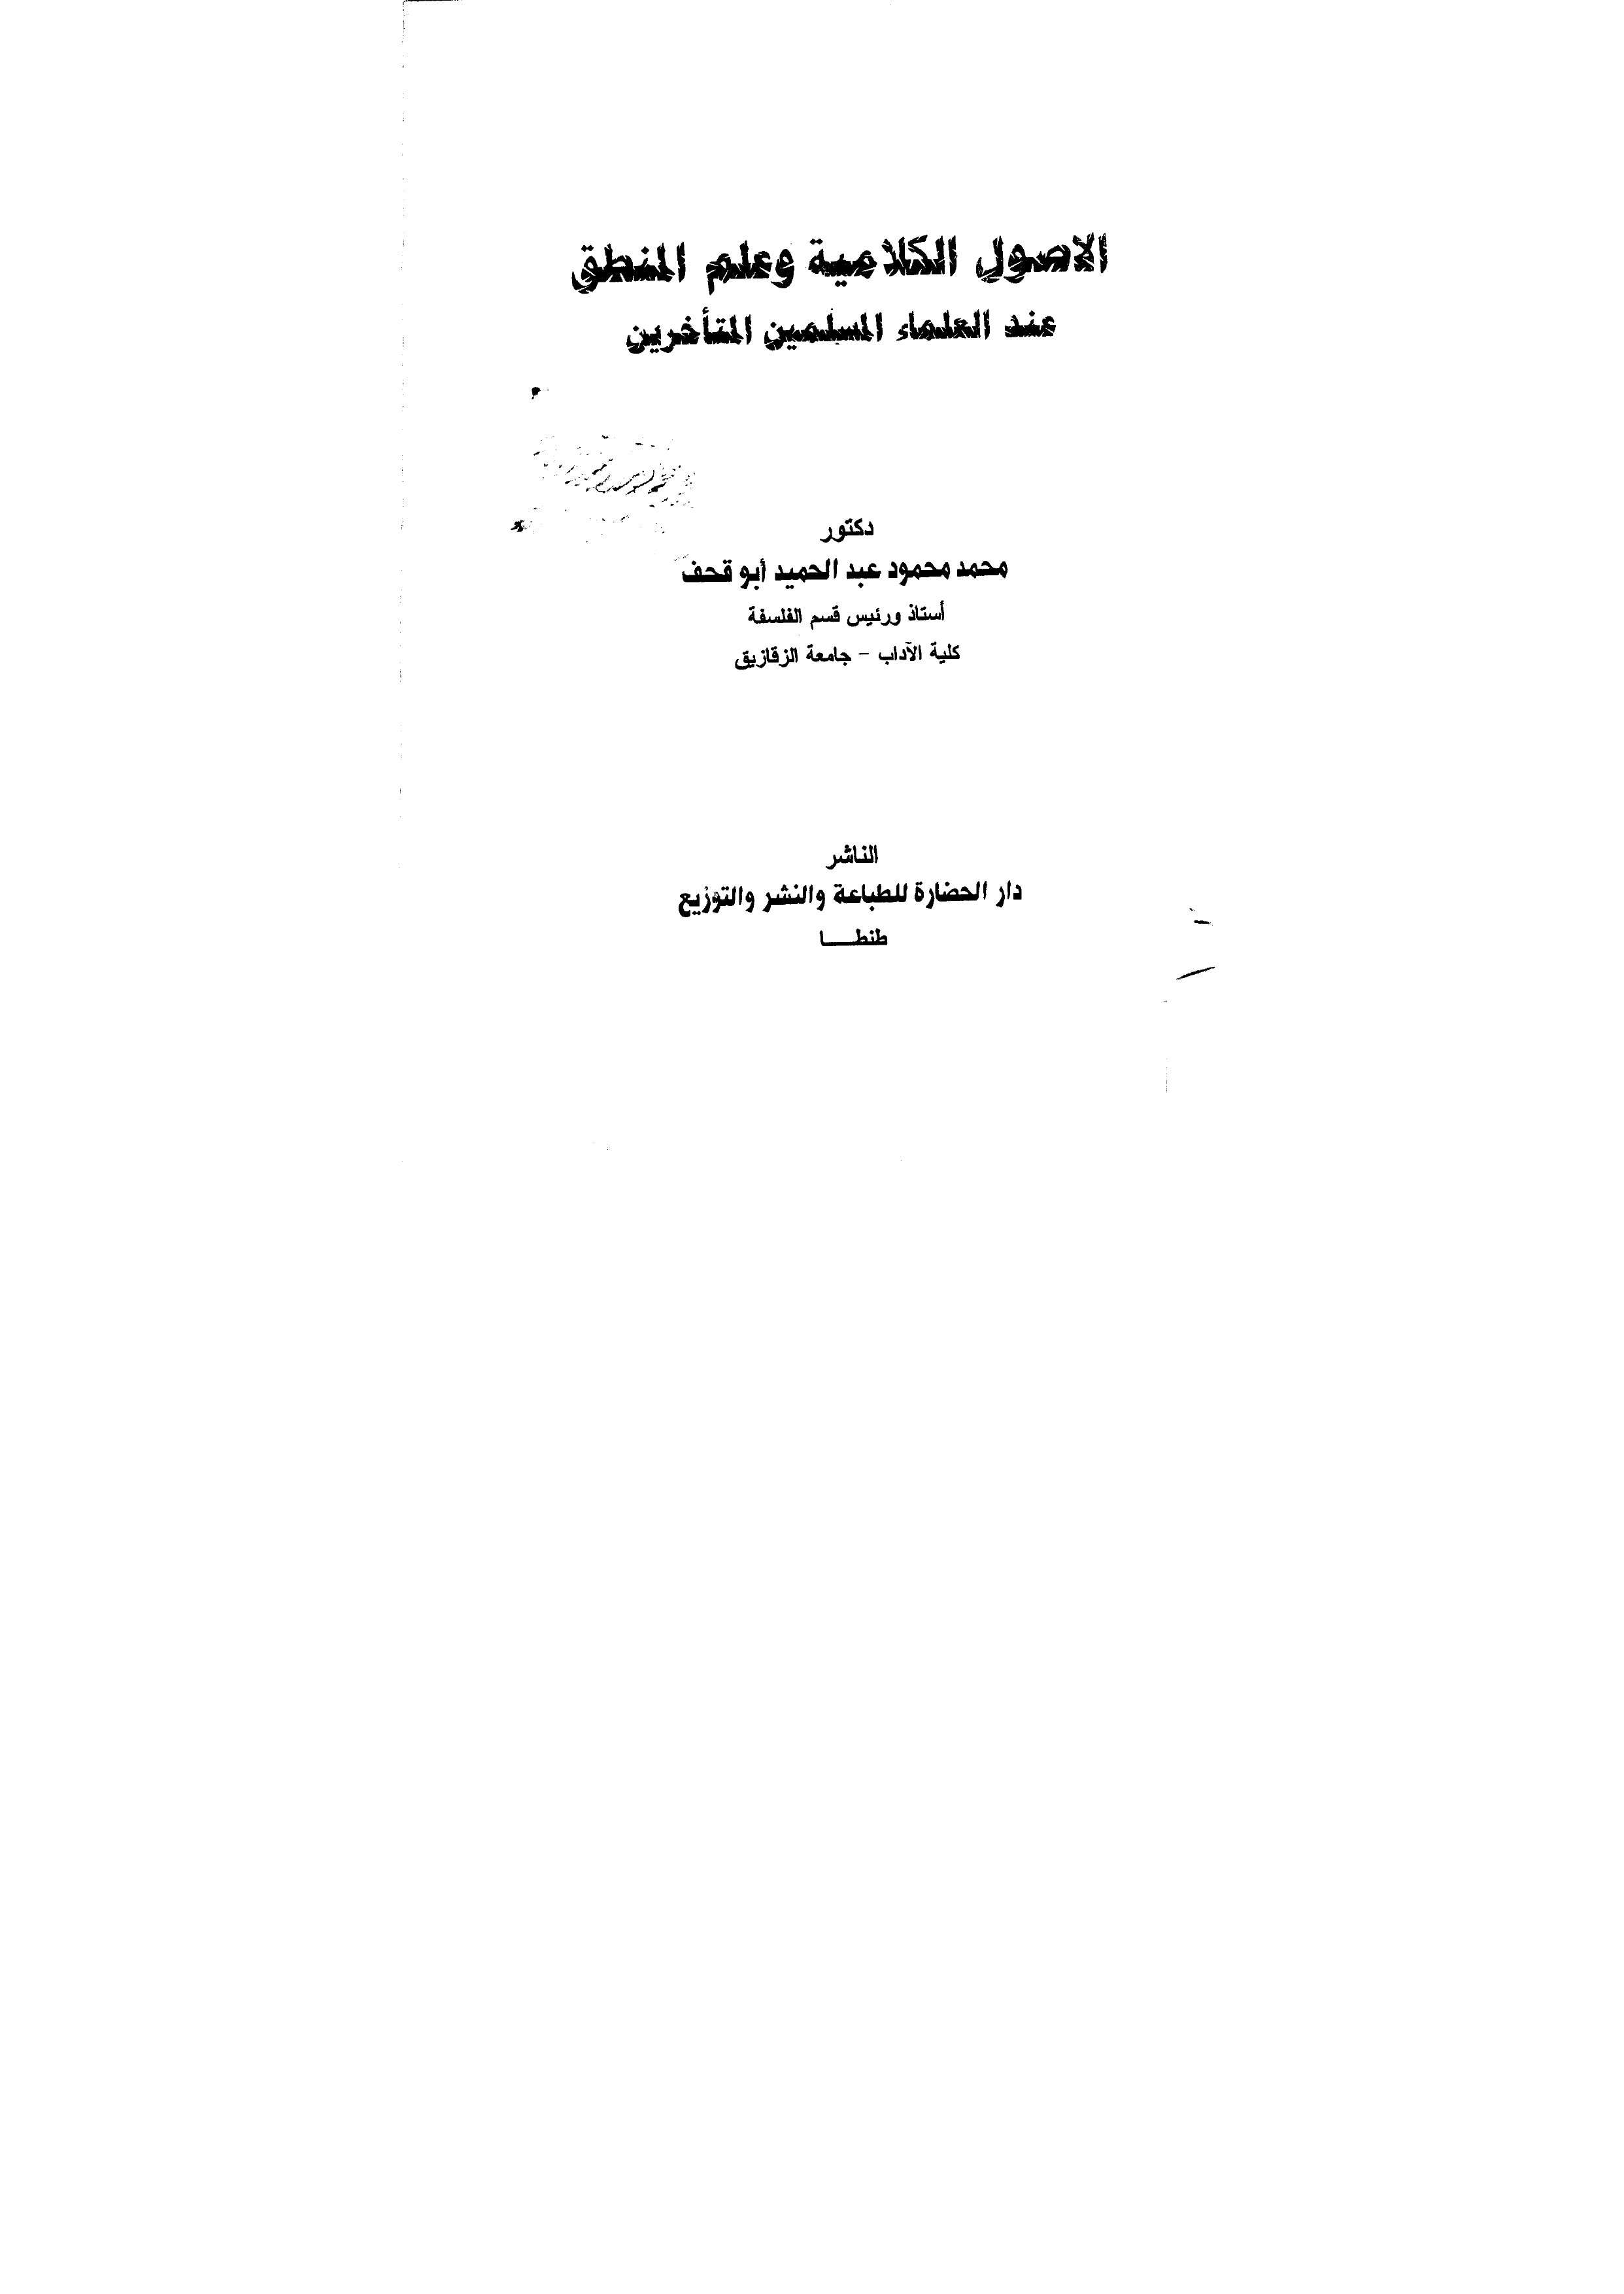 الاصول الكلامية وعلم المنطق
عند العلماء المسلمين المتأخرين
دكتور
محمد محمود عبد الحميد أبو قحف
أستاذ ورئيس قسم الفلسفة
كلية الآداب – جامعة الزقازيق
الناشر
دار الحضارة للطباعة والنشر والتوزيع
طنطـــــا